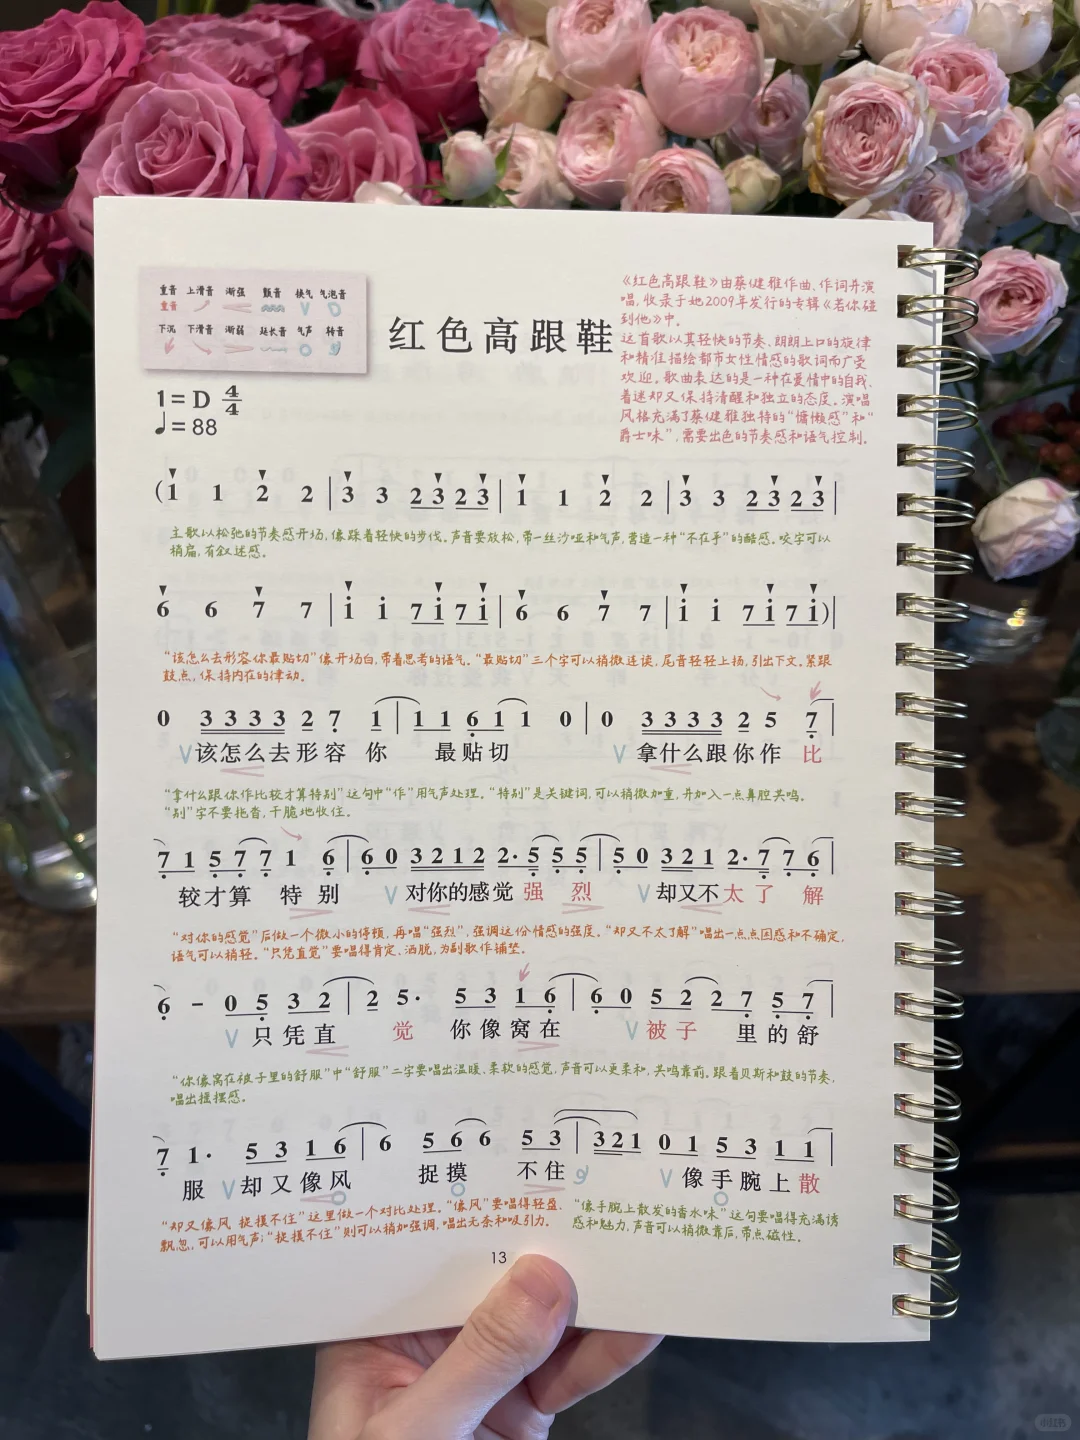 重音 上滑音 渐强 颤音 换气 气泡音
重音
下沉 下滑音 渐弱 延长音 气声 转音
红色高跟鞋
《红色高跟鞋》由蔡健雅作曲、作词并演
唱,收录于她2009年发行的专辑《若你碰
到他》中。
这首歌以其轻快的节奏、朗朗上口的旋律
和精准描绘都市女性情感的歌词而广受
欢迎。歌曲表达的是一种在爱情中的自我、
着迷却又保持清醒和独立的态度。演唱
风格充满了蔡健雅独特的“慵懒感”和“
爵士味”,需要出色的节奏感和语气控制。
1=D 4/4
♩=88
(1 1 2 2 | 3 3 2 3 2 3 | 1 1 2 2 | 3 3 2 3 2 3 |
主歌以松弛的节奏感开场,像踩着轻快的步伐。声音要放松,带一丝沙哑和气声,营造一种“不在乎”的酷感。咬字可以
稍扁,有叙述感。
6 6 7 7 | i i 7 i 7 i | 6 6 7 7 | i i 7 i 7 i)|
“该怎么去形容你最贴切”像开场白,带着思考的语气。“最贴切”三个字可以稍微连读,尾音轻轻上扬,引出下文。紧跟
鼓点,保持内在的律动。
0 3 3 3 3 2 7 1 | 1 1 6 1 1 0 | 0 3 3 3 3 2 5 7 |
V 该怎么去形容 你 最贴切 V 拿什么跟你作 比
“拿什么跟你作比较才算特别”这句中“作”用气声处理。“特别”是关键词,可以稍微加重,并加入一点鼻腔共鸣。
“别”字不要拖沓,干脆地收住。
7 1 5 7 7 1 6 | 6 0 3 2 1 2 2· 5 5 5 | 5 0 3 2 1 2· 7 7 6 |
较才算 特 别 V 对你的感觉 强 烈 V 却又不太了 解
“对你的感觉”后做一个微小的停顿,再唱“强烈”,强调这份情感的强度。“却又不太了解”唱出一点点困惑和不确定,
语气可以稍轻。“只凭直觉”要唱得肯定、洒脱,为副歌作铺垫。
6 - 0 5 3 2 | 2 5· 5 3 1 6 | 6 0 5 2 2 7 5 7 |
V 只凭直 觉 你像窝在 V 被子 里的舒
“你像窝在被子里的舒服”中“舒服”二字要唱出温暖、柔软的感觉,声音可以更柔和,共鸣靠前。跟着贝斯和鼓的节奏,
唱出摇摆感。
7 1· 5 3 1 6 | 6 5 6 6 5 3 | 3 2 1 0 1 5 3 1 1 |
服 V 却又像风 捉摸 不住 V 像手腕上散
“却又像风 捉摸不住”这里做一个对比处理。“像风”要唱得轻盈、
飘忽,可以用气声;“捉摸不住”则可以稍加强调,唱出无奈和吸引力。
“像手腕上散发的香水味”这句要唱得充满诱
惑和魅力,声音可以稍微靠后,带点磁性。
13
小红书